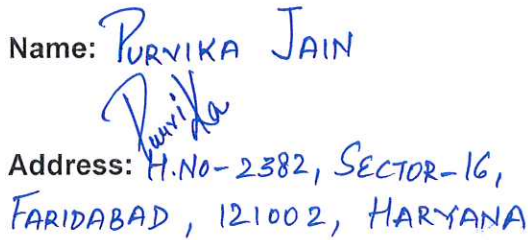 Name: PURVIKA JAIN
Purvika
Address: H.NO-2382, SECTOR-16,
FARIDABAD, 121002, HARYANA